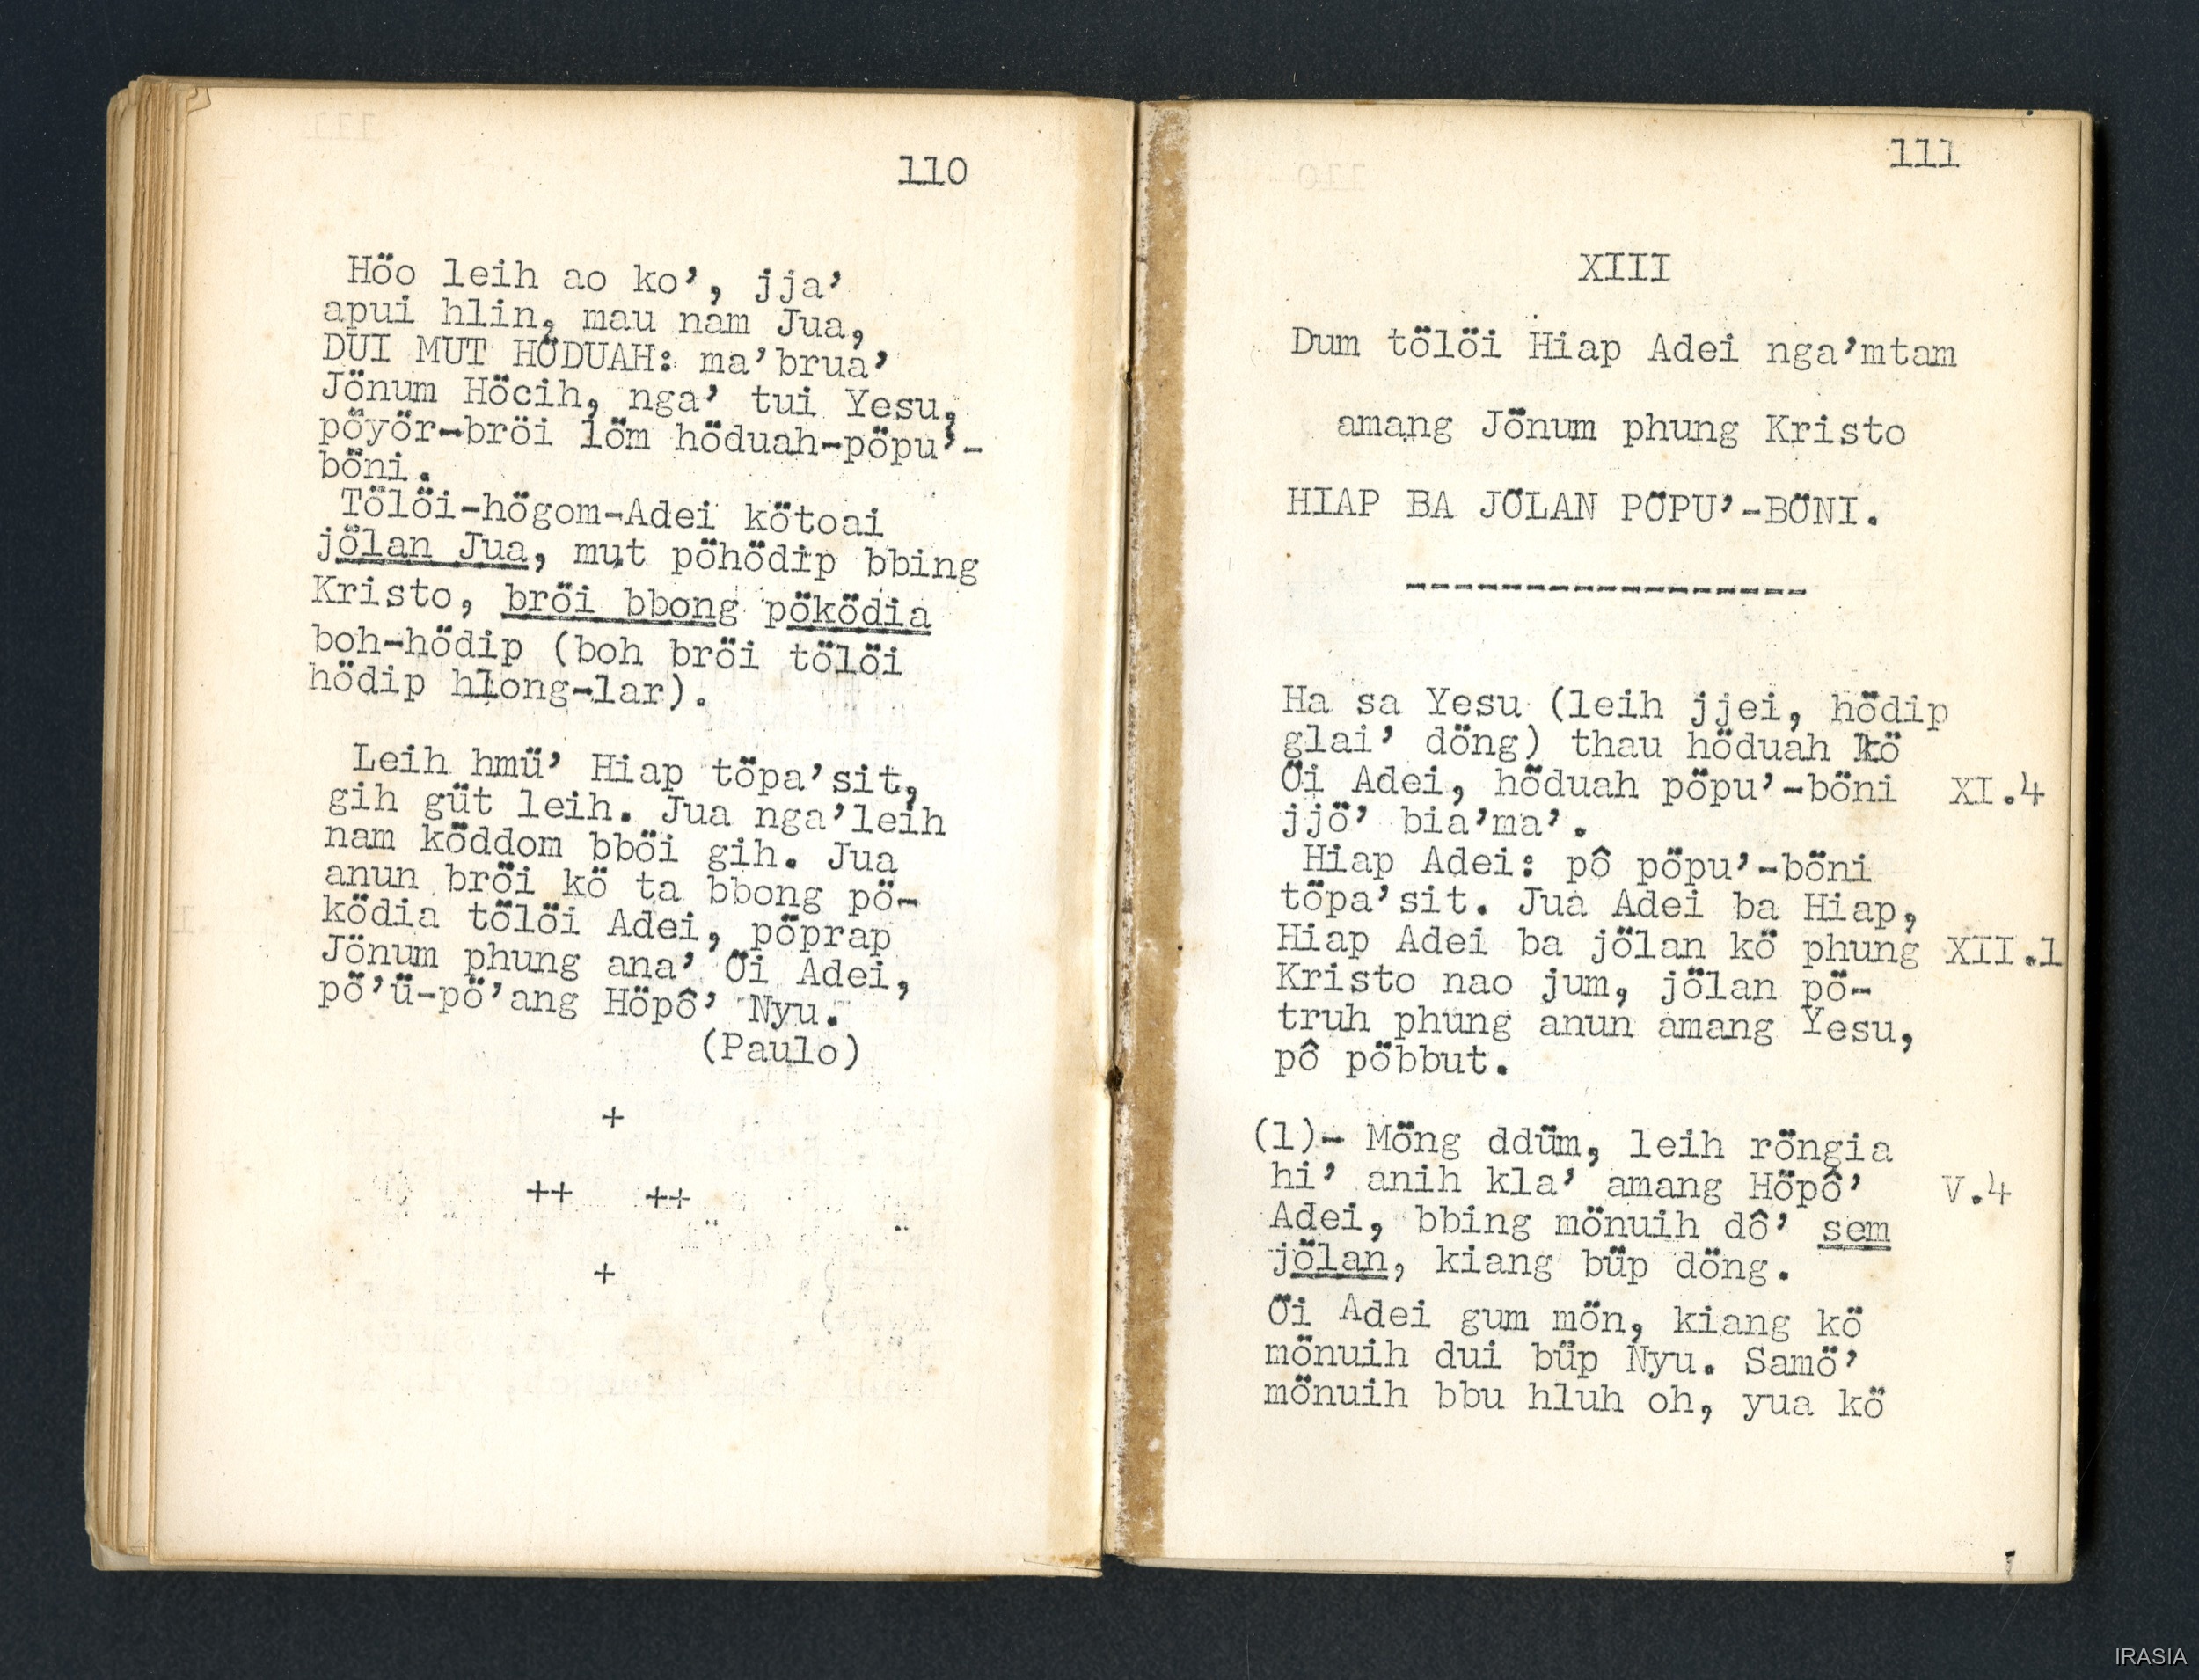 110
Höo leih ao ko’, jja’
apui hlin, mau nam Jua,
DUI MUT HÖDUAH: ma’brua’
Jönum Höcih, nga’ tui Yesu,
pöyör-bröi löm höduah-pöpu’-
böni.
Tölöi-högom-Adei kötoai
jölan Jua, mut pöhödip bbing
Kristo, bröi bbong pöködia
boh-hödip (boh bröi tölöi
hödip hlong-lar).
Leih hmü’ Hiap töpa’sit,
gih güt leih. Jua nga’leih
nam köddom bböi gih. Jua
anun bröi kö ta bbong pö-
ködia tölöi Adei, pöprap
Jönum phung ana’ Öi Adei,
pö’ü-pö’ang Höpô’ Nyu.
(Paulo)
+
++ ++
+
111
XIII
Dum tölöi Hiap Adei nga’mtam
amang Jönum phung Kristo
HIAP BA JÖLAN PÖPU’-BÖNI.
-----------------
Ha sa Yesu (leih jjei, hödip
glai’ döng) thau höduah kö
Öi Adei, höduah pöpu’-böni XI.4
jjö’ bia’ma’.
Hiap Adei: pô pöpu’-böni
töpa’sit. Jua Adei ba Hiap,
Hiap Adei ba jölan kö phung XII.1
Kristo nao jum, jölan pö-
truh phung anun amang Yesu,
pô pöbbut.
(1)- Möng ddüm, leih röngia
hi’ anih kla’ amang Höpô’ V.4
Adei, bbing mönuih dô’ sem
jölan, kiang büp döng.
Öi Adei gum mön, kiang kö
mönuih dui büp Nyu. Samö’
mönuih bbu hluh oh, yua kö
IRASIA